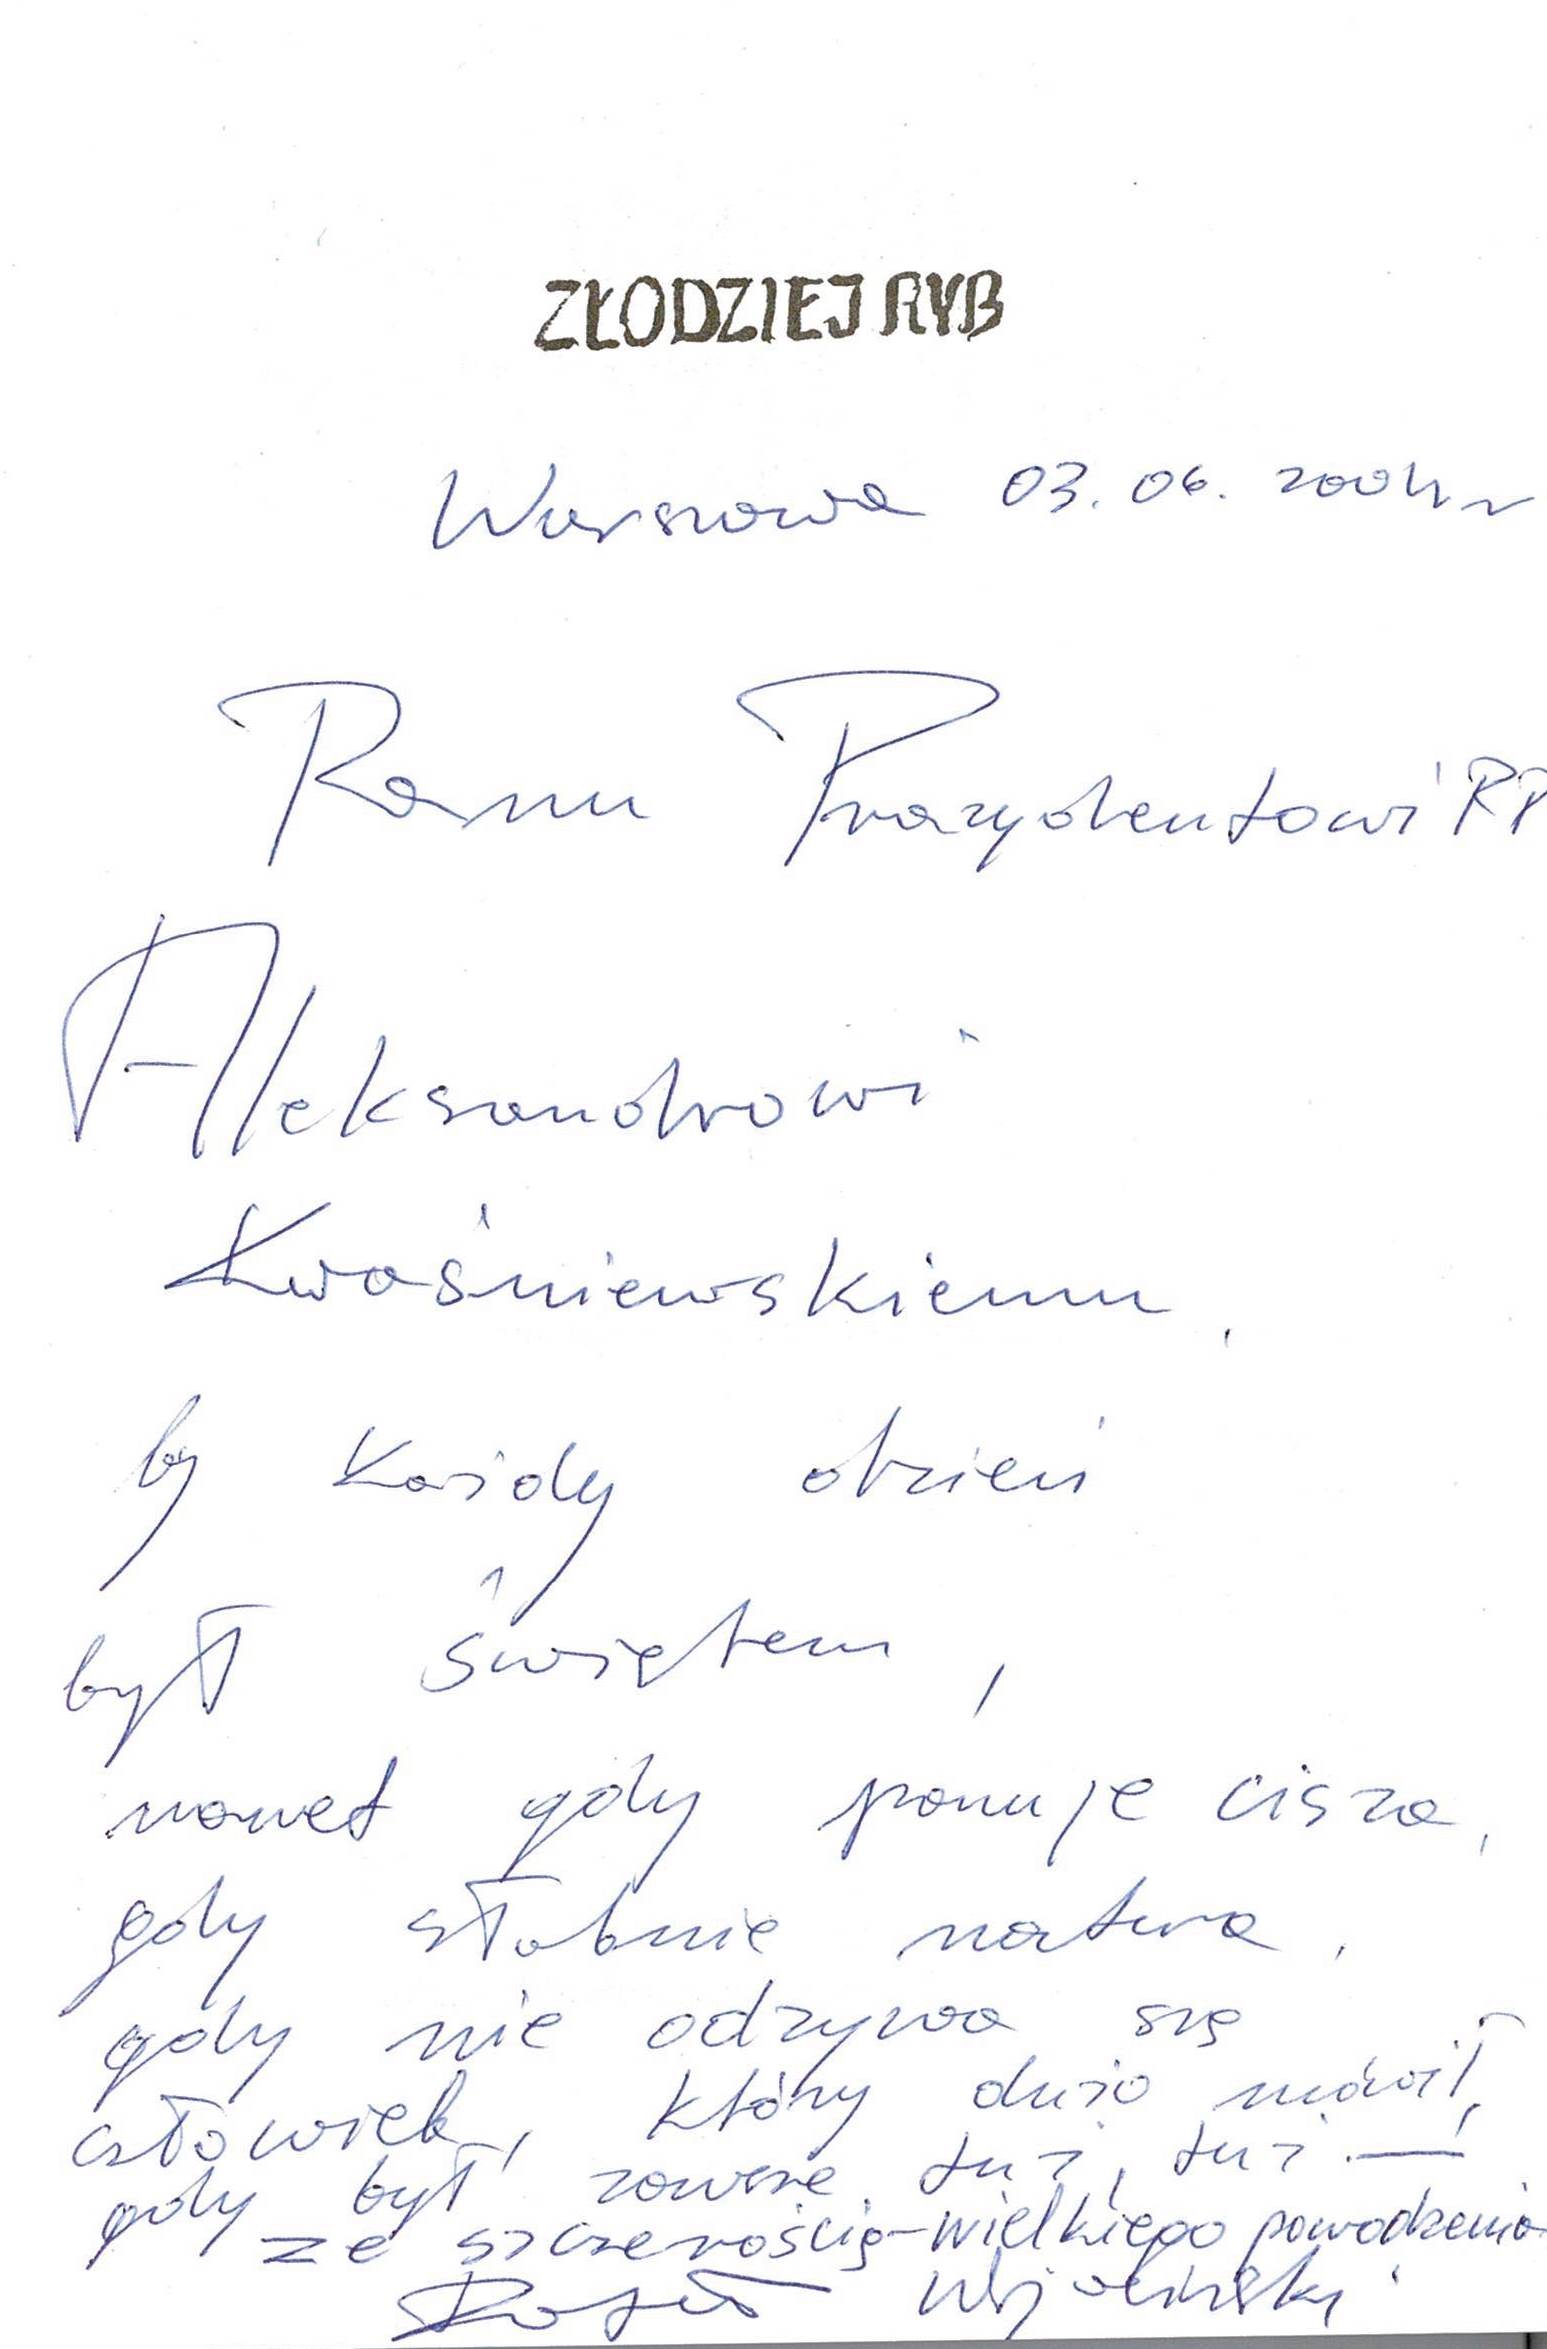 ZŁODZIEJ RYB
Warszawa 03.06.2004 r
Panu Prezydentowi RP
Aleksandrowi
Kwaśniewskiemu,
by każdy dzień
był świętem,
nawet gdy panuje cisza,
gdy słabnie natura,
gdy nie odzywa się
człowiek, który dużo mówił,
gdy był zawsze tuż, tuż —
ze szczerością - wielkiego powodzenia
Rafał